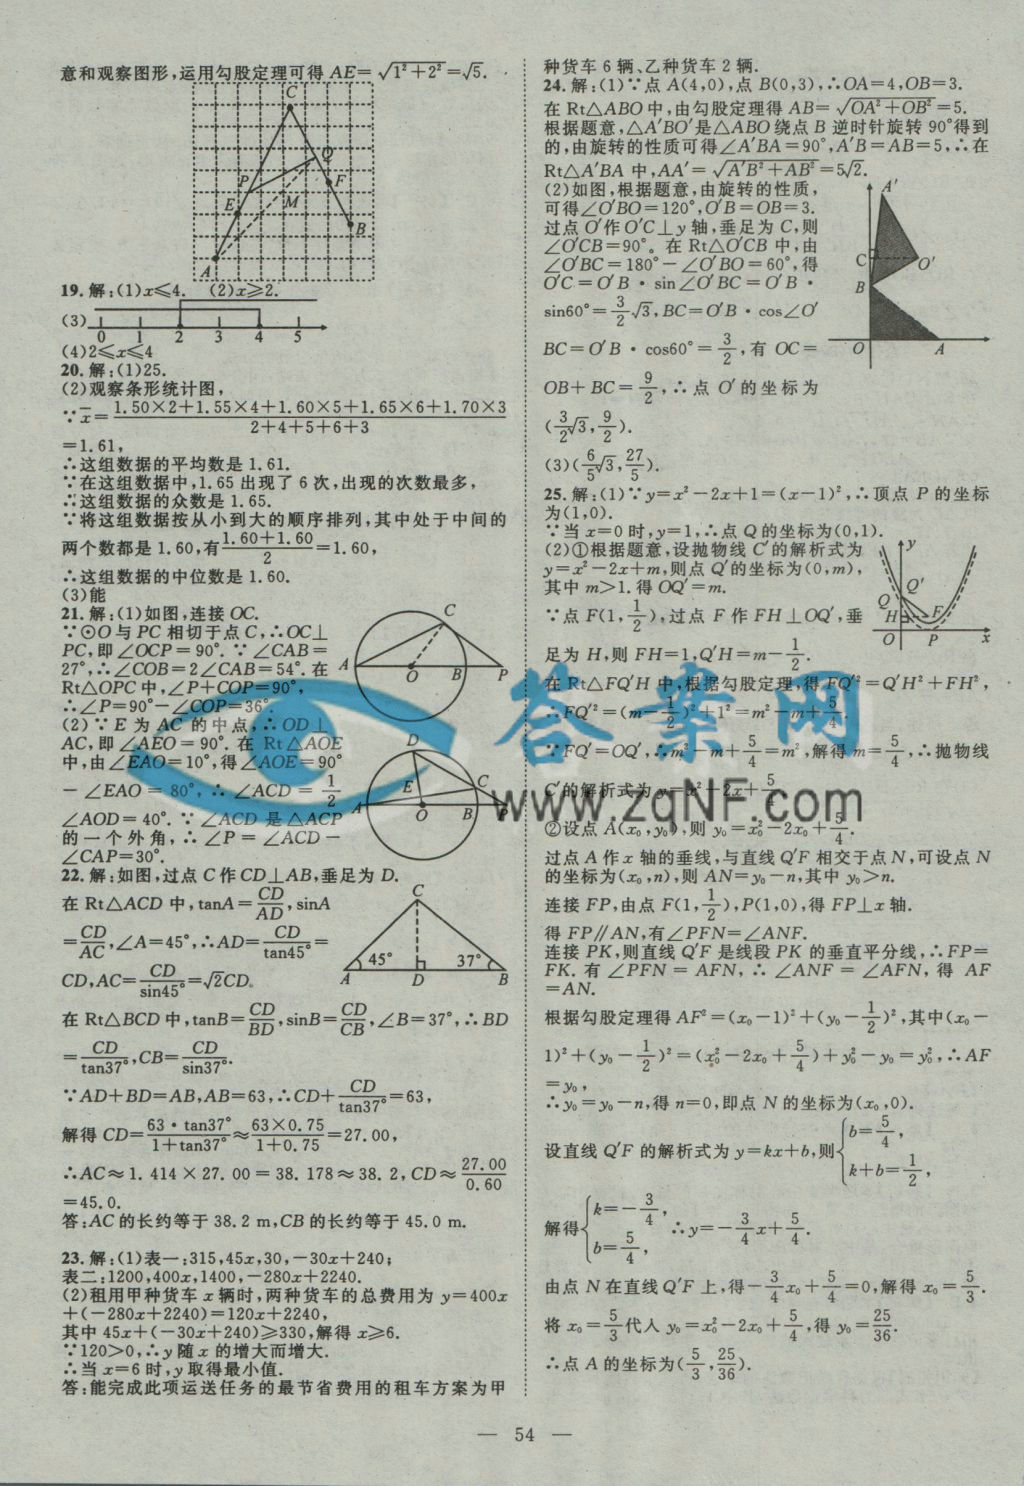 意和观察图形,运用勾股定理可得 AE=√(1²+2²)=√5.
C
Q
P
F
E
M
B
A
19.解:(1)x≤4. (2)x≥2.
(3)
0 1 2 3 4 5
(4)2≤x≤4
20.解:(1)25.
(2)观察条形统计图,
∵x̄=(1.50×2+1.55×4+1.60×5+1.65×6+1.70×3)/(2+4+5+6+3)
=1.61,
∴这组数据的平均数是 1.61.
∵在这组数据中,1.65 出现了 6 次,出现的次数最多,
∴这组数据的众数是 1.65.
∵将这组数据按从小到大的顺序排列,其中处于中间的
两个数都是 1.60,有(1.60+1.60)/2=1.60,
∴这组数据的中位数是 1.60.
(3)能
21.解:(1)如图,连接 OC.
∵⊙O 与 PC 相切于点 C,∴OC⊥
PC,即∠OCP=90°. ∵∠CAB=
27°,∴∠COB=2∠CAB=54°. 在
Rt△OPC 中,∠P+∠COP=90°,
∴∠P=90°-∠COP=36°.
C
A O B P
(2)∵E 为 AC 的中点,∴OD⊥
AC,即∠AEO=90°. 在 Rt△AOE
中,由∠EAO=10°,得∠AOE=90°
-∠EAO=80°,∴∠ACD=1/2
∠AOD=40°. ∵∠ACD 是△ACP
的一个外角,∴∠P=∠ACD-
∠CAP=30°.
D
E C
A O B P
22.解:如图,过点 C 作 CD⊥AB,垂足为 D.
在 Rt△ACD 中,tanA=CD/AD,sinA
=CD/AC,∠A=45°,∴AD=CD/tan45°=
CD,AC=CD/sin45°=√2CD.
C
45° 37°
A D B
在 Rt△BCD 中,tanB=CD/BD,sinB=CD/CB,∠B=37°,∴BD
=CD/tan37°,CB=CD/sin37°.
∵AD+BD=AB,AB=63,∴CD+CD/tan37°=63,
解得 CD=(63·tan37°)/(1+tan37°)≈(63×0.75)/(1+0.75)=27.00,
∴AC≈1.414×27.00=38.178≈38.2,CD≈27.00/0.60
=45.0.
答:AC 的长约等于 38.2 m,CB 的长约等于 45.0 m.
23.解:(1)表一:315,45x,30,-30x+240;
表二:1200,400x,1400,-280x+2240.
(2)租用甲种货车 x 辆时,两种货车的总费用为 y=400x
+(-280x+2240)=120x+2240,
其中 45x+(-30x+240)≥330,解得 x≥6.
∵120>0,∴y 随 x 的增大而增大.
∴当 x=6 时,y 取得最小值.
答:能完成此项运送任务的最节省费用的租车方案为甲
种货车 6 辆、乙种货车 2 辆.
24.解:(1)∵点 A(4,0),点 B(0,3),∴OA=4,OB=3.
在 Rt△ABO 中,由勾股定理得 AB=√(OA²+OB²)=5.
根据题意,△A′BO′是△ABO 绕点 B 逆时针旋转 90°得到
的,由旋转的性质可得∠A′BA=90°,A′B=AB=5,∴在
Rt△A′BA 中,AA′=√(A′B²+AB²)=5√2.
(2)如图,根据题意,由旋转的性质,
可得∠O′BO=120°,O′B=OB=3.
过点 O′作 O′C⊥y 轴,垂足为 C,则
∠O′CB=90°. 在 Rt△O′CB 中,由
∠O′BC=180°-∠O′BO=60°,得
O′C=O′B·sin∠O′BC=O′B·
sin60°=3/2√3,BC=O′B·cos∠O′
BC=O′B·cos60°=3/2,有 OC=
OB+BC=9/2,∴点 O′的坐标为
(3/2√3,9/2).
A′
C O′
B
O A
(3)(6/5√3,27/5).
25.解:(1)∵y=x²-2x+1=(x-1)²,∴顶点 P 的坐标
为(1,0).
∵当 x=0 时,y=1,∴点 Q 的坐标为(0,1).
(2)①根据题意,设抛物线 C′的解析式为
y=x²-2x+m,则点 Q′的坐标为(0,m),
其中 m>1. 得 OQ′=m.
∵点 F(1,1/2),过点 F 作 FH⊥OQ′,垂
足为 H,则 FH=1,Q′H=m-1/2.
y
Q′
Q
H F
O P x
在 Rt△FQ′H 中,根据勾股定理,得 FQ′²=Q′H²+FH²,
∴FQ′²=(m-1/2)²+1²=m²-m+5/4.
∵FQ′=OQ′,∴m²-m+5/4=m²,解得 m=5/4,∴抛物线
C′的解析式为 y=x²-2x+5/4.
②设点 A(x₀,y₀),则 y₀=x₀²-2x₀+5/4.
过点 A 作 x 轴的垂线,与直线 Q′F 相交于点 N,可设点 N
的坐标为(x₀,n),则 AN=y₀-n,其中 y₀>n.
连接 FP,由点 F(1,1/2),P(1,0),得 FP⊥x 轴.
得 FP∥AN,有∠PFN=∠ANF.
连接 PK,则直线 Q′F 是线段 PK 的垂直平分线,∴FP=
FK. 有∠PFN=AFN,∴∠ANF=∠AFN,得 AF
=AN.
根据勾股定理得 AF²=(x₀-1)²+(y₀-1/2)²,其中(x₀-
1)²+(y₀-1/2)²=(x₀²-2x₀+5/4)+y₀²-y₀=y₀²,∴AF
=y₀,
∴y₀=y₀-n,得 n=0,即点 N 的坐标为(x₀,0).
设直线 Q′F 的解析式为 y=kx+b,则{b=5/4, k+b=1/2,
解得{k=-3/4, b=5/4, ∴y=-3/4x+5/4.
由点 N 在直线 Q′F 上,得-3/4x₀+5/4=0,解得 x₀=5/3.
将 x₀=5/3代入 y₀=x₀²-2x₀+5/4,得 y₀=25/36.
∴点 A 的坐标为(5/3,25/36).
— 54 —
答案网
www.zqNF.com